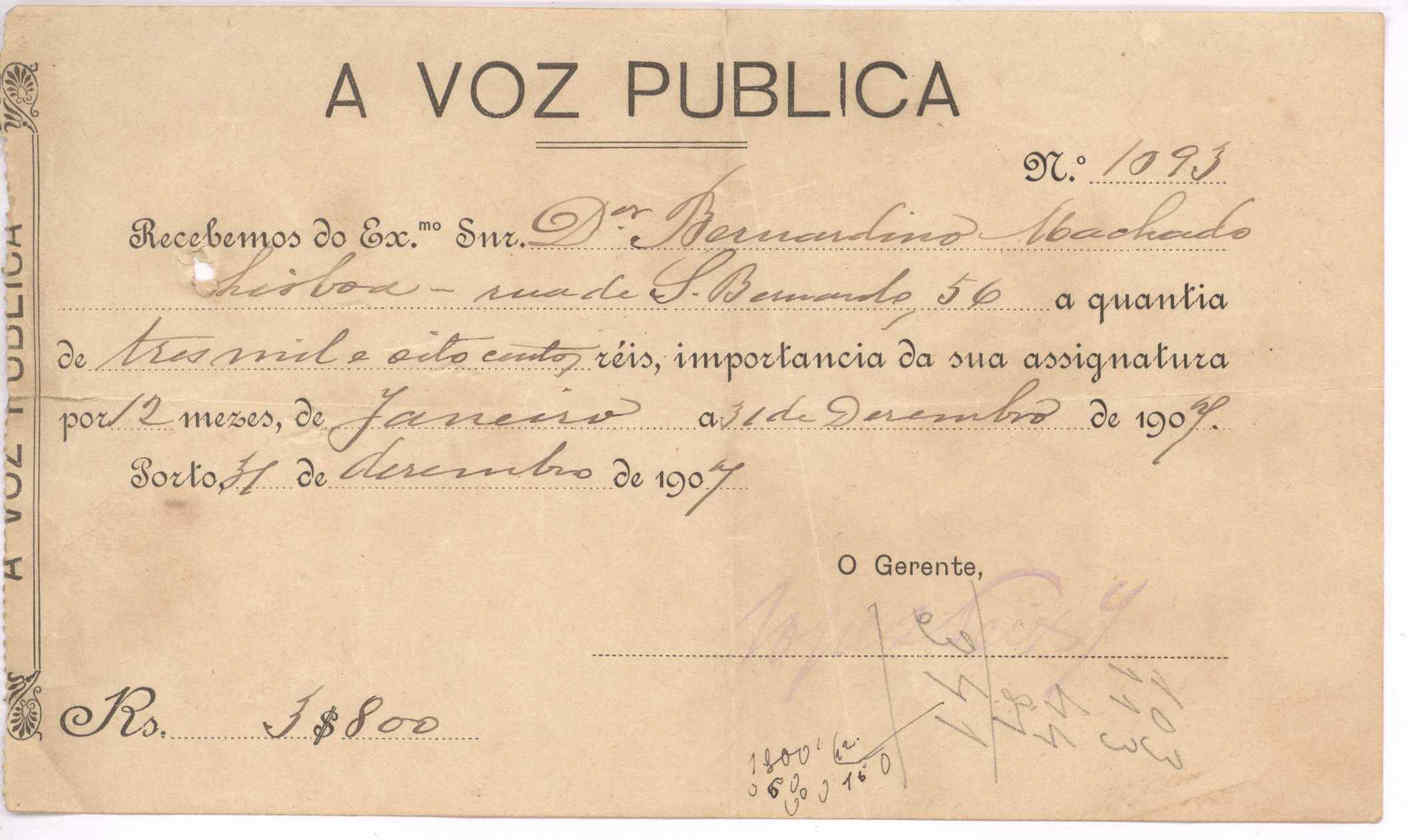 A VOZ PUBLICA
N.º 1093
Recebemos do Ex.mo Snr. Dor. Bernardino Machado
Lisboa - rua de S. Bernardo, 56 a quantia
de tres mil e oito centos réis, importancia da sua assignatura
por 12 mezes, de Janeiro a 31 de Dezembro de 1907.
Porto, 31 de dezembro de 1907
O Gerente,
Rs. 3$800
A VOZ PUBLICA